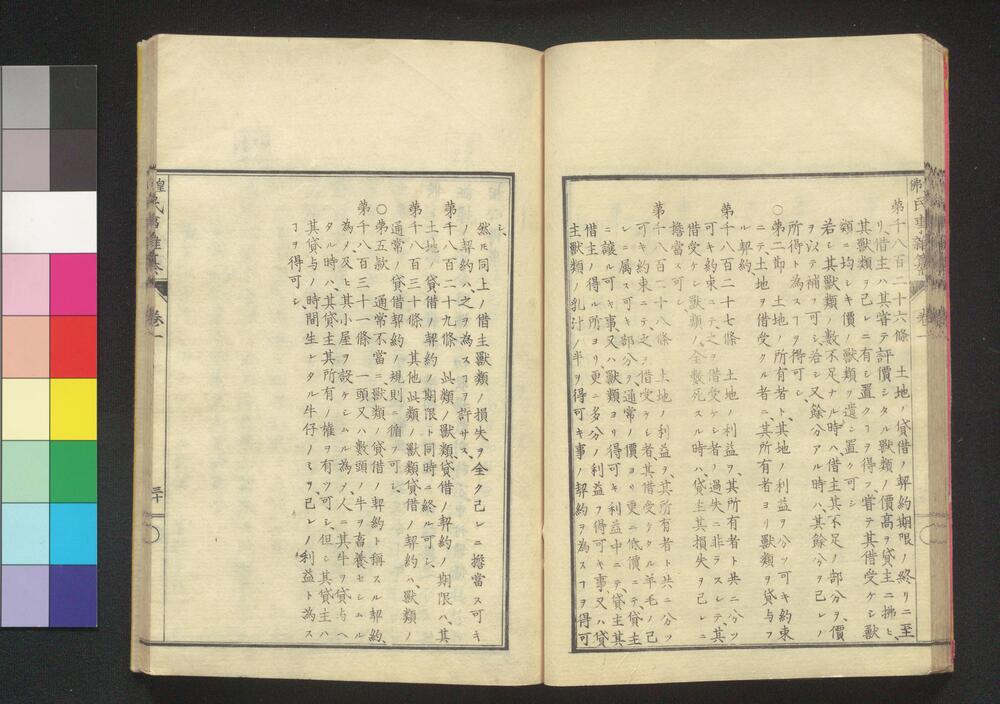 第千八百二十六條　土地ノ貸借ノ契約期限ノ終リニ至
リ、借主ハ其嘗テ評價シタル獸類ノ價高ヲ貸主ニ拂ヒ、
其獸類ヲ己レニ有シ置クヿヲ得ス、嘗テ其借受ケシ獸
類ニ均シキ價ノ獸類ヲ遺シ置ク可シ
若シ其獸類ノ數不足ナル時ハ借主其不足ノ部分ヲ、價
ヲ以テ補フ可シ、若シ又餘分アル時ハ、其餘分ヲ己レノ
所得ト為スヿヲ得可シ
○第二節　土地ノ所有者ト、其地ノ利益ヲ分ツ可キ約束
ニテ土地ヲ借受クル者ニ、其所有者ヨリ獸類ヲ貸与フ
ル契約、
第千八百二十七條　土地ノ利益ヲ、其所有者ト共ニ分ツ
可キ約束ニテ、之ヲ借受ケシ者ノ過失ニ非ラスシテ、其
借受ケシ獸類ノ全數死スル時ハ、貸主其損失ヲ己レニ
擔當ス可シ、
第千八百二十八條　土地ノ利益ヲ、其所有者ト共ニ分ツ
可キ約束ニテ、之ヲ借受ケシ者、其借受ケタル羊毛ノ己
レニ属ス可キ部分ヲ、通常ノ價ヨリ更ニ低價ニテ、貸主
ニ譲ル可キ事、又ハ獸類ヨリ得可キ利益中ニテ、貸主其
借主ノ得ル所ヨリ更ニ多分ノ利益ヲ得可キ事、又ハ貸
主獸類ノ乳汁ノ半ヲ得可キ事ノ契約ヲ為スヿヲ得可
シ、
然モ同上ノ借主獸類ノ損失ヲ全ク己レニ擔當ス可キ
ノ契約ハ、之ヲ為スヿヲ許サス、
第千八百二十九條　此類ノ獸類貸借ノ契約ノ期限ハ、其
土地ノ貸借ノ契約ノ期限ト同時ニ終ル可シ、
第千八百三十條　其他此類ノ獸類貸借ノ契約ハ、獸類ノ
通常ノ貸借契約ノ規則ニ循フ可シ、
○第五款　通常不當ニ、獸類ノ貸借ノ契約ト稱スル契約、
第千八百三十一條　一頭又ハ數頭ノ牛ヲ畜養セシムル
為メ及ヒ其小屋ヲ設ケシムル為メ、人ニ其牛ヲ貸与ヘ
タル時ハ、其貸主其所有ノ權ヲ有ツ可シ、但シ其貸主ハ
其貸与ノ時間生レタル牛仔ノミヲ、己レノ利益ト為ス
ヿヲ得可シ、
卷一
三十